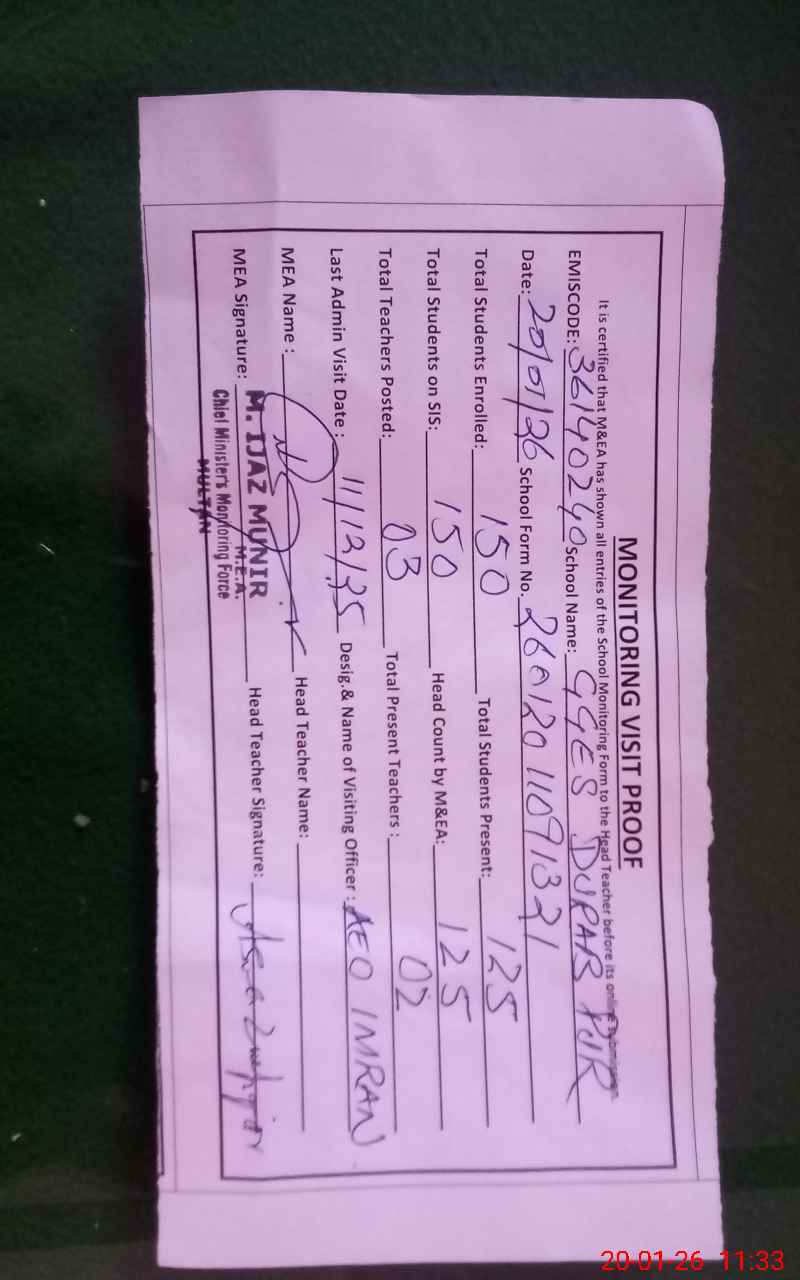 MONITORING VISIT PROOF
It is certified that M&EA has shown all entries of the School Monitoring Form to the Head Teacher before its online Submission
EMISCODE: 36140240 School Name: GGES DURAB PUR
Date: 20/01/26 School Form No. 26012011091321
Total Students Enrolled: 150 Total Students Present: 125
Total Students on SIS: 150 Head Count by M&EA: 125
Total Teachers Posted: 03 Total Present Teachers : 02
Last Admin Visit Date : 11/12/25 Desig.& Name of Visiting Officer : AEO IMRAN
MEA Name : Head Teacher Name:
MEA Signature: Head Teacher Signature:
M. IJAZ MUNIR
M.E.A.
Chief Minister's Monitoring Force
MULTAN
20-01-26 11:33